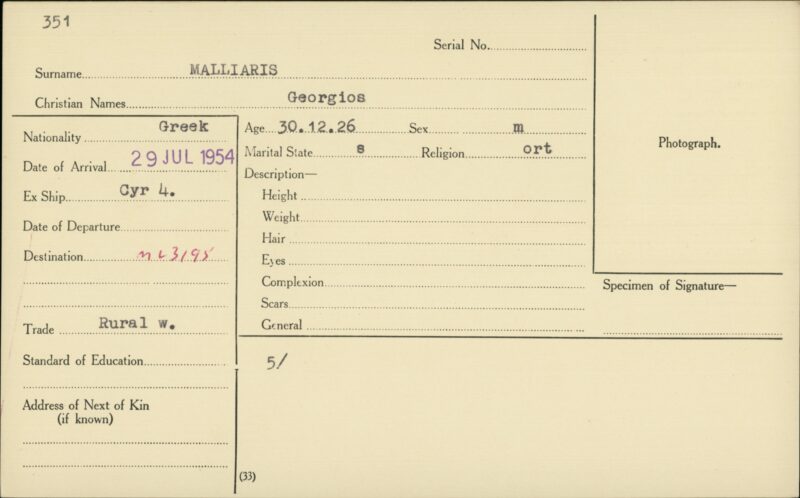 351
Serial No.
Surname MALLIARIS
Christian Names Georgios
Nationality Greek
Date of Arrival 29 JUL 1954
Ex Ship Cyr 4.
Date of Departure
Destination n L 3195
Trade Rural w.
Standard of Education
Address of Next of Kin
(if known)
Age 30.12.26 Sex m
Marital State s Religion ort
Description—
Height
Weight
Hair
Eyes
Complexion
Scars
General
5/
(33)
Photograph.
Specimen of Signature—